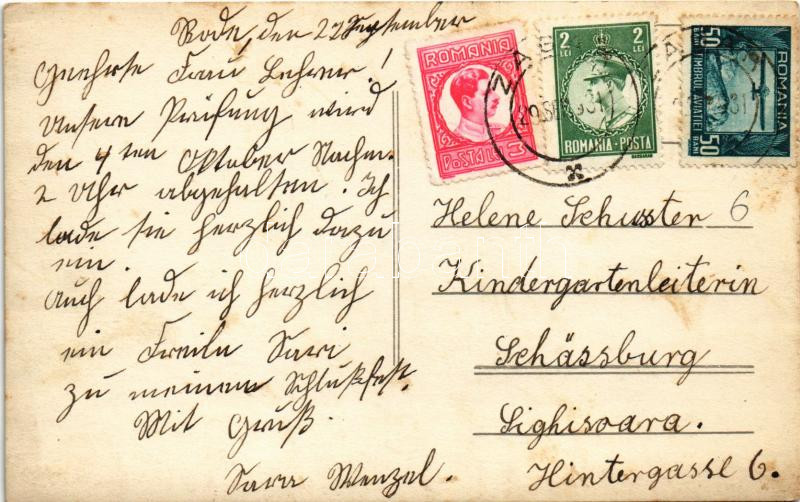 Rode, den 22 September
Geehrte Frau Lehrer!
Unsere Prüfung wird
den 4ten Oktober Nachm.
2 Uhr abgehalten. Ich
lade sie herzlich dazu
ein.
Auch lade ich herzlich
ein Freiln Sari
zu meinem Schlußfest.
Mit Gruß.
Sara Wenzel.
ROMANIA
POSTA LEI 3
2 LEI 2 LEI
ROMANIA-POSTA
50 BANI TIMBRUL AVIATIEI BANI 50
ROMANIA
Helene Schuster 6
Kindergartenleiterin
Schässburg
Sighisoara.
Hintergasse 6.